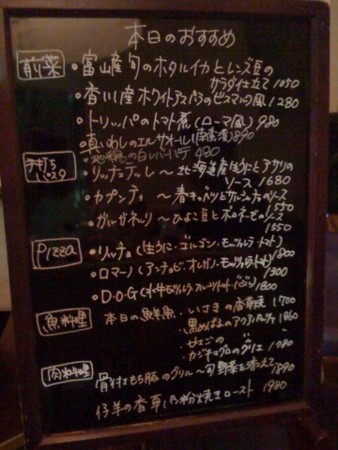 本日のおすすめ
前菜
・富山産旬のホタルイカとレンズ豆の
サラダ仕立て 1050
・香川産ホワイトアスパラのビスマルク風 1280
・トリッパのトマト煮(ローマ風) 980
・真いわしの 890
・地鶏の白レバーパテ 480
手打ちパスタ
・リッチョーナレ〜北海道産生うにとアサリの
ソース 1680
・カブンティ 〜春キャベツとサルシッチャのソース
1550
・ガルガネッリ〜ひよこ豆とボロネーゼのソース
1550
Pizza
・リッチョ(生うに・ゴルゴンゾーラ・モッツァレラ・トマト) 1800
・ロマーノ(アンチョビ・オレガノ・モッツァレラ・トマト) 1300
・D.O.G(水牛モッツァレラ・フルーツトマト・バジル) 1800
魚料理
本日の鮮魚・いさきの香草焼 1700
・黒めばるのアクアパッツァ 1860
・カジキマグロのグリエ 1980
肉料理
骨付もち豚のグリル〜旬野菜を添えて 1890
仔羊の香草パン粉焼きロースト 1980